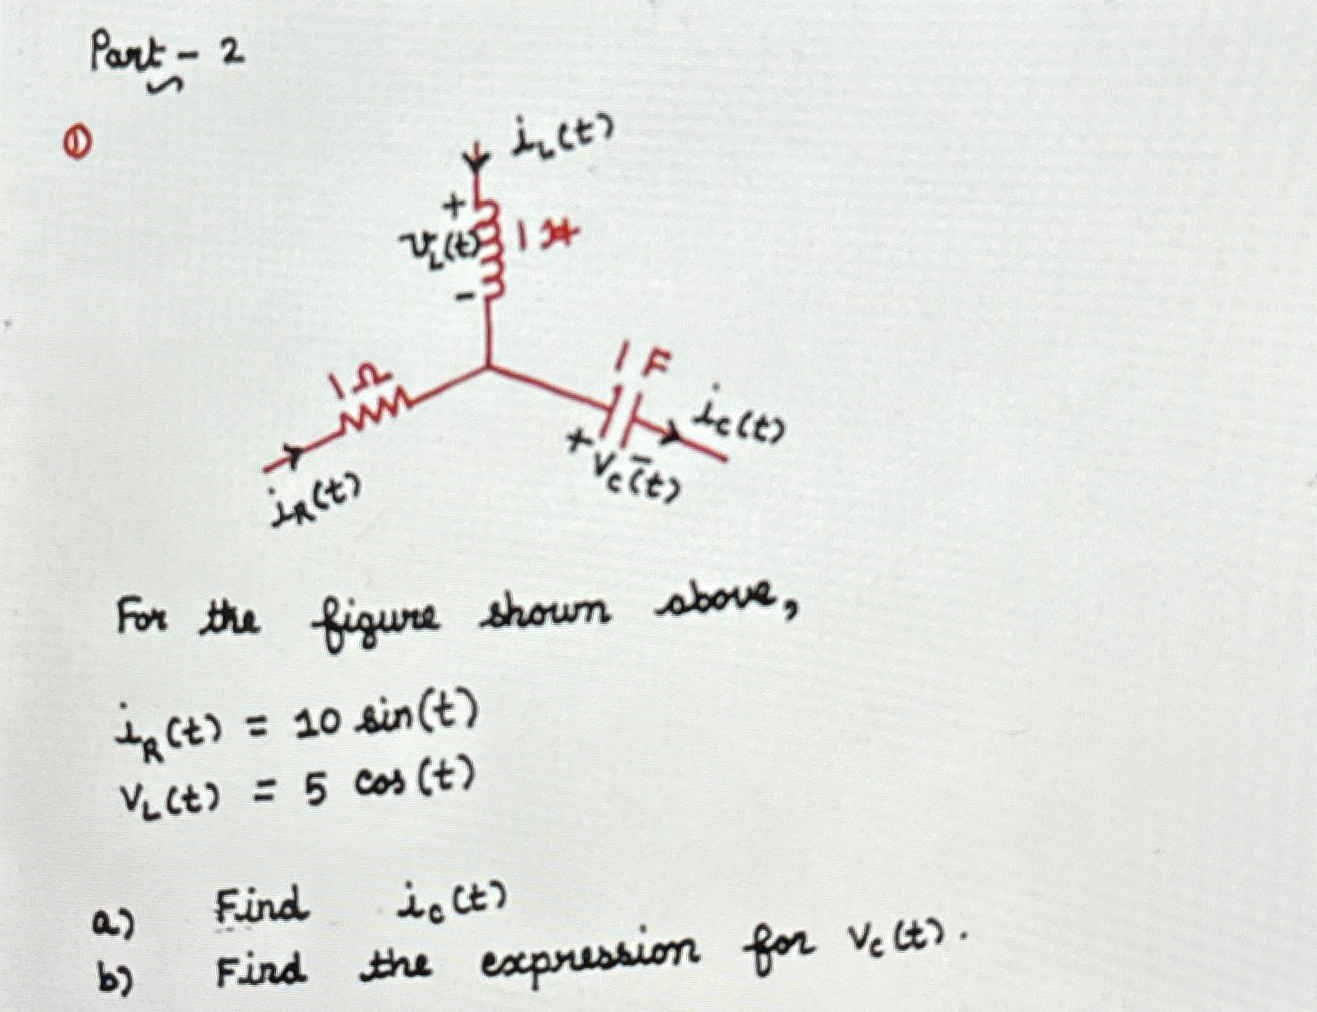 Part - 2
①
i_L(t)
+
v_L(t) 1 H
-
1 Ω
1 F
i_C(t)
+ V_C(t) -
i_R(t)
For the figure shown above,
i_R(t) = 10 sin(t)
V_L(t) = 5 cos(t)
a) Find i_C(t)
b) Find the expression for V_C(t).